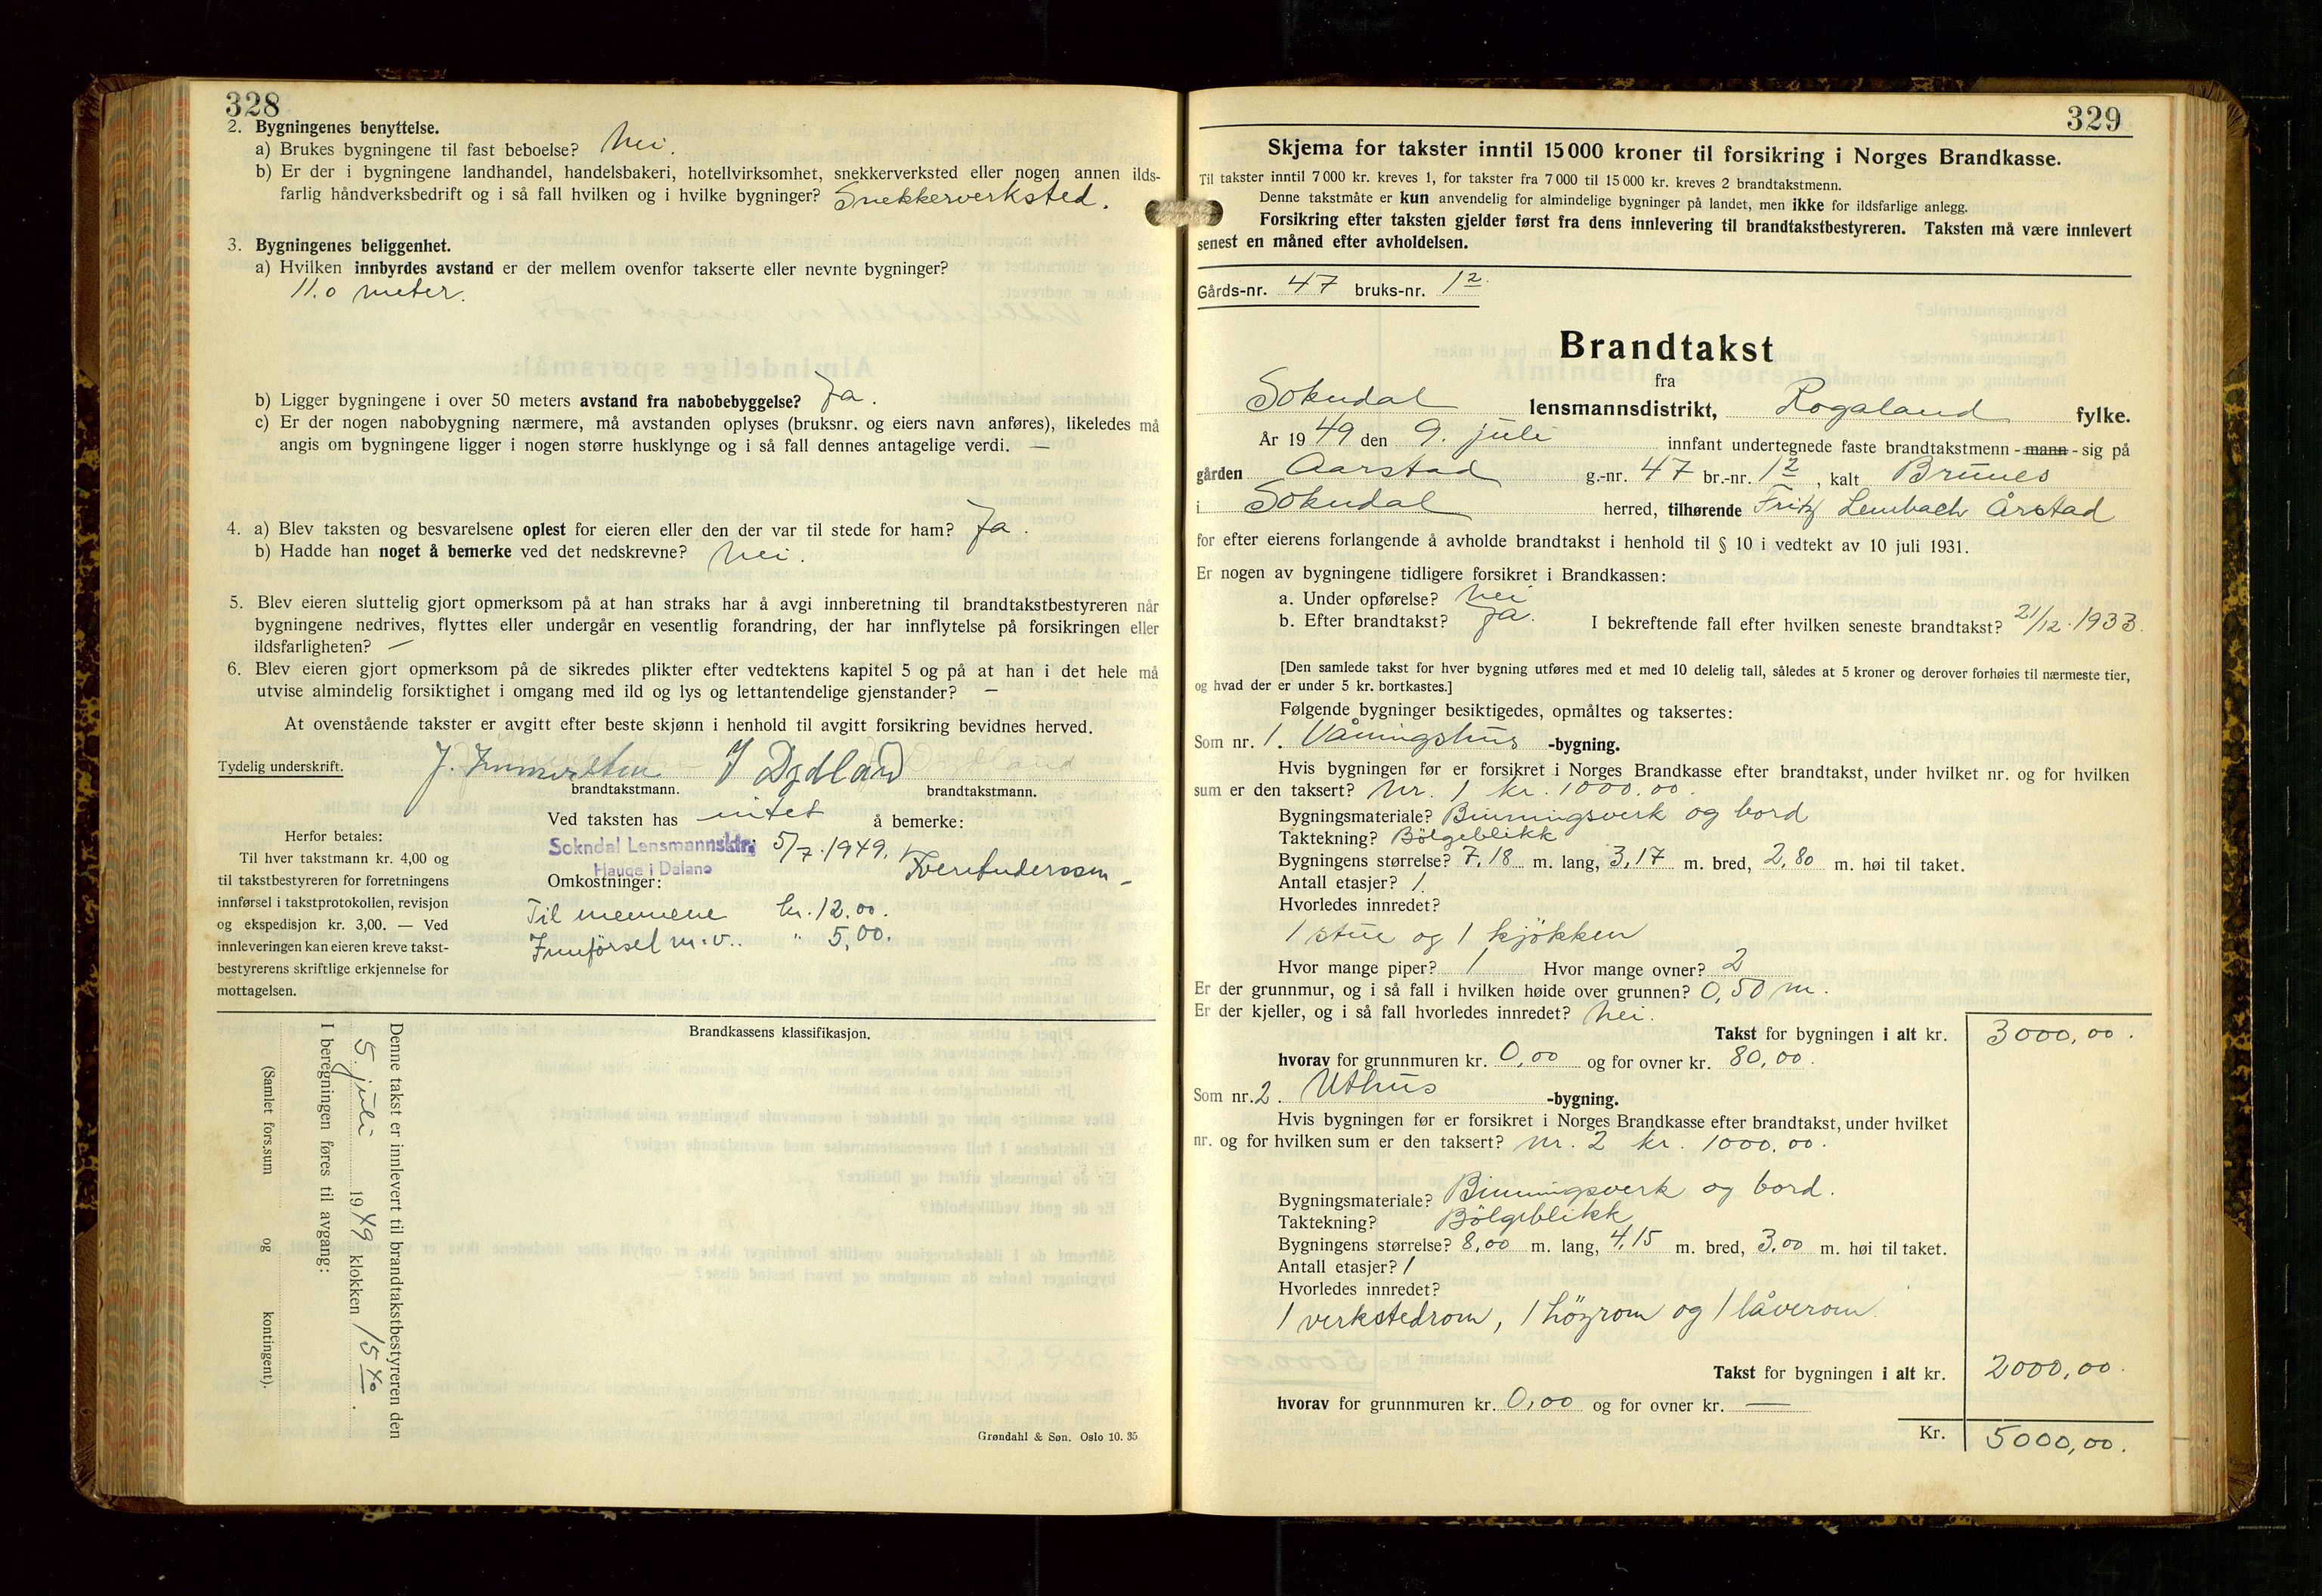 328
2. Bygningenes benyttelse.
a) Brukes bygningene til fast beboelse? Nei.
b) Er der i bygningene landhandel, handelsbakeri, hotellvirksomhet, snekkerverksted eller nogen annen ilds-
farlig håndverksbedrift og i så fall hvilken og i hvilke bygninger? Snekkerverksted.
3. Bygningenes beliggenhet.
a) Hvilken innbyrdes avstand er der mellem ovenfor takserte eller nevnte bygninger?
11.0 meter.
b) Ligger bygningene i over 50 meters avstand fra nabobebyggelse? Ja.
c) Er der nogen nabobygning nærmere, må avstanden oplyses (bruksnr. og eiers navn anføres), likeledes må
angis om bygningene ligger i nogen større husklynge og i så fall dennes antagelige verdi. —
4. a) Blev taksten og besvarelsene oplest for eieren eller den der var til stede for ham? Ja.
b) Hadde han noget å bemerke ved det nedskrevne? Nei.
5. Blev eieren sluttelig gjort opmerksom på at han straks har å avgi innberetning til brandtakstbestyreren når
bygningene nedrives, flyttes eller undergår en vesentlig forandring, der har innflytelse på forsikringen eller
ildsfarligheten? —
6. Blev eieren gjort opmerksom på de sikredes plikter efter vedtektens kapitel 5 og på at han i det hele må
utvise almindelig forsiktighet i omgang med ild og lys og lettantendelige gjenstander? —
At ovenstående takster er avgitt efter beste skjønn i henhold til avgitt forsikring bevidnes herved.
Tydelig underskrift. J. Dydland
brandtakstmann. brandtakstmann.
Ved taksten has intet å bemerke:
Sokndal Lensmannsktr. 5/7.1949.
Hauge i Dalane
Herfor betales:
Til hver takstmann kr. 4,00 og
til takstbestyreren for forretningens
innførsel i takstprotokollen, revisjon
og ekspedisjon kr. 3,00. — Ved
innleveringen kan eieren kreve takst-
bestyrerens skriftlige erkjennelse for
mottagelsen.
Omkostninger:
Til mennene kr. 12.00.
Innførsel m.v. " 5,00.
Brandkassens klassifikasjon.
Denne takst er innlevert til brandtakstbestyreren den
5. juli 1949 klokken 15 40.
I beregningen føres til avgang:
(Samlet fors.sum og kontingent).
Grøndahl & Søn. Oslo 10. 35
329
Skjema for takster inntil 15 000 kroner til forsikring i Norges Brandkasse.
Til takster inntil 7 000 kr. kreves 1, for takster fra 7 000 til 15 000 kr. kreves 2 brandtakstmenn.
Denne takstmåte er kun anvendelig for almindelige bygninger på landet, men ikke for ildsfarlige anlegg.
Forsikring efter taksten gjelder først fra dens innlevering til brandtakstbestyreren. Taksten må være innlevert
senest en måned efter avholdelsen.
Gårds-nr. 47 bruks-nr. 12.
Brandtakst
fra
Sokndal lensmannsdistrikt, Rogaland fylke.
År 1949 den 9. juli innfant undertegnede faste brandtakstmenn - mann - sig på
gården Aarstad g.-nr. 47 br.-nr. 12, kalt Brunes
i Sokndal herred, tilhørende Fritz Lembach Årstad
for efter eierens forlangende å avholde brandtakst i henhold til § 10 i vedtekt av 10 juli 1931.
Er nogen av bygningene tidligere forsikret i Brandkassen:
a. Under opførelse? Nei
b. Efter brandtakst? Ja. I bekreftende fall efter hvilken seneste brandtakst? 21/12.1933.
[Den samlede takst for hver bygning utføres med et med 10 delelig tall, således at 5 kroner og derover forhøies til nærmeste tier,
og hvad der er under 5 kr. bortkastes.]
Følgende bygninger besiktigedes, opmåltes og taksertes:
Som nr. 1. Våningshus -bygning.
Hvis bygningen før er forsikret i Norges Brandkasse efter brandtakst, under hvilket nr. og for hvilken
sum er den taksert? Nr. 1 kr. 1000.00.
Bygningsmateriale? Binningsverk og bord
Taktekning? Bölgeblikk
Bygningens størrelse? 7,18 m. lang, 3,17 m. bred, 2,80 m. høi til taket.
Antall etasjer? 1.
Hvorledes innredet?
1 stue og 1 kjökken
Hvor mange piper? 1 Hvor mange ovner? 2
Er der grunnmur, og i så fall i hvilken høide over grunnen? 0,50 m.
Er der kjeller, og i så fall hvorledes innredet? Nei.
Takst for bygningen i alt kr. 3000,00.
hvorav for grunnmuren kr. 0,00 og for ovner kr. 80,00.
Som nr. 2. Uthus -bygning.
Hvis bygningen før er forsikret i Norges Brandkasse efter brandtakst, under hvilket
nr. og for hvilken sum er den taksert? Nr. 2 kr. 1000.00.
Bygningsmateriale? Binningsverk og bord.
Taktekning? Bölgeblikk
Bygningens størrelse? 8,00 m. lang, 4,15 m. bred, 3,00 m. høi til taket.
Antall etasjer? 1
Hvorledes innredet?
1 verkstedrom, 1 höyrom og 1 låverom.
Takst for bygningen i alt kr. 2000,00.
hvorav for grunnmuren kr. 0,00 og for ovner kr. —
Kr. 5000,00.